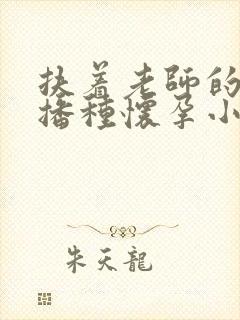 扶着老師的
播種懷孕小
朱天龍